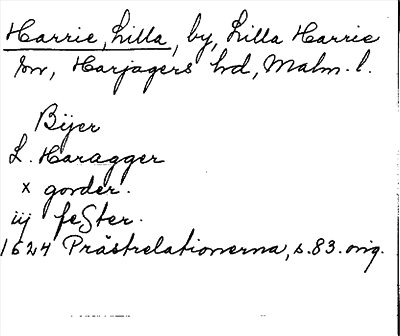 Harrie, Lilla, by, Lilla Harrie
sn, Harjagers hd, Malm. l.
Bÿer
L. Haragger
x gorder.
iij fester.
1624 Prästrelationerna, s. 83. orig.